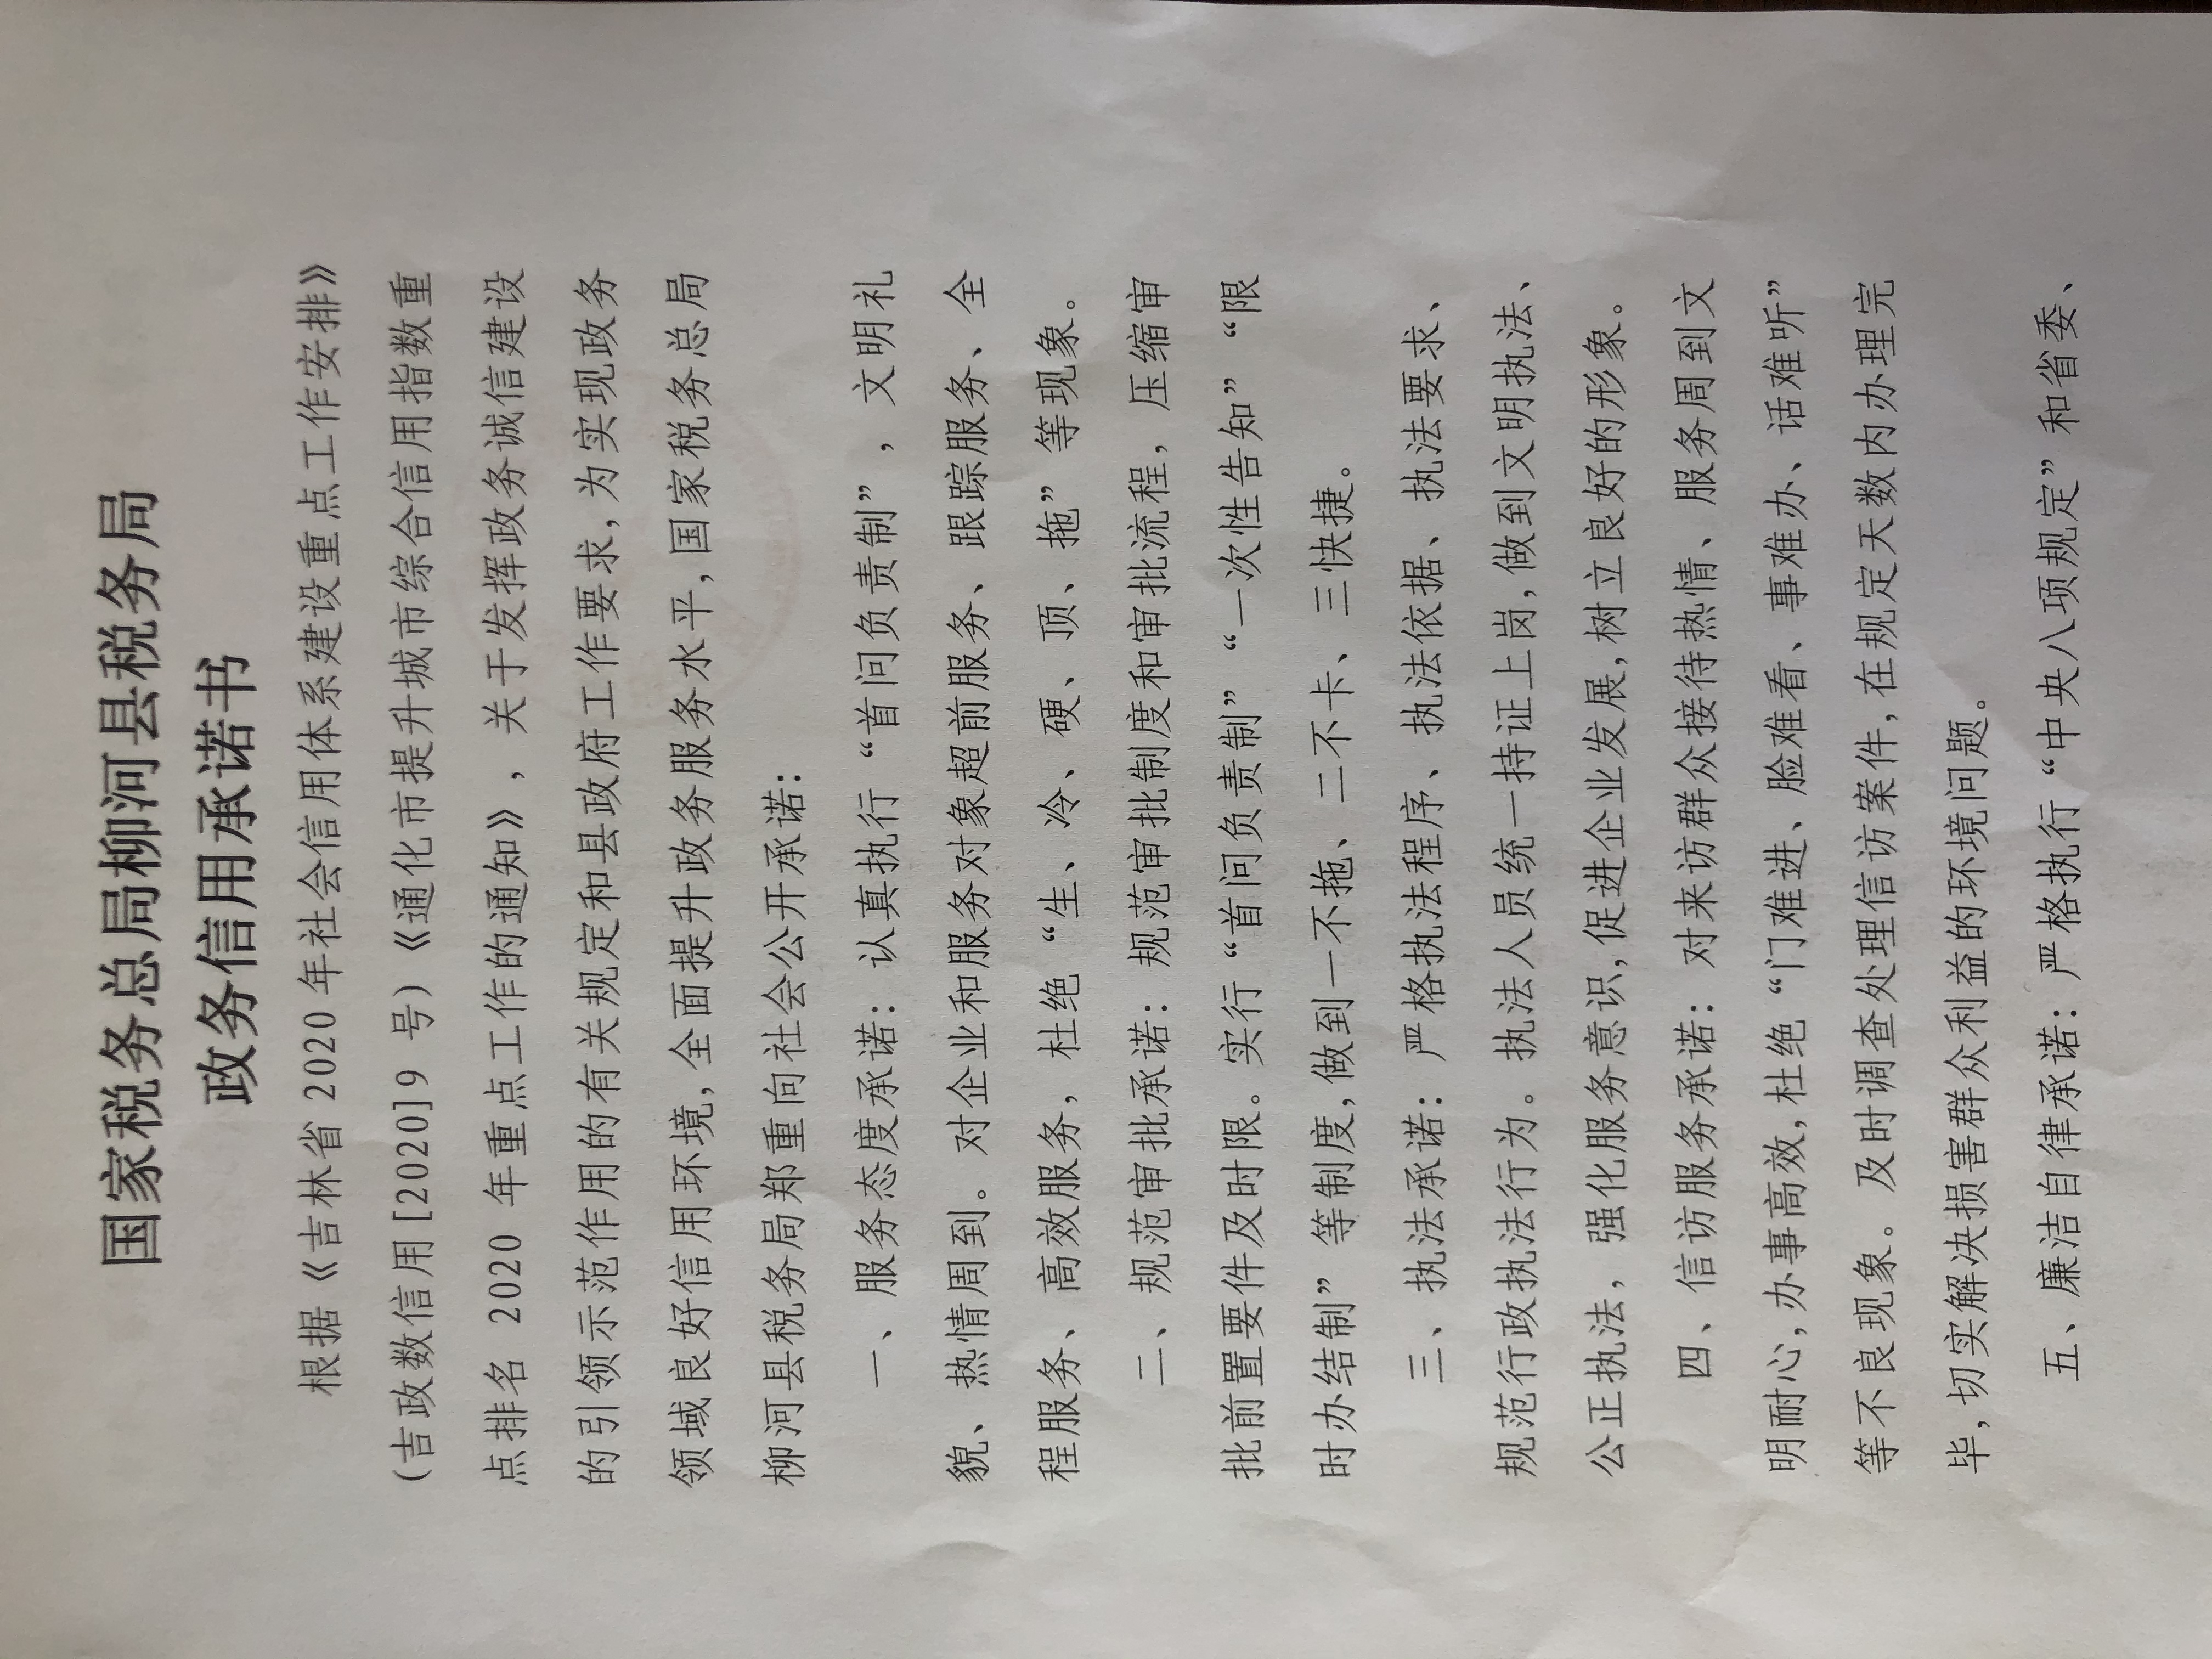 国家税务总局柳河县税务局
政务信用承诺书
根据《吉林省 2020 年社会信用体系建设重点工作安排》
(吉政数信用[2020]9 号)《通化市提升城市综合信用指数重
点排名 2020 年重点工作的通知》，关于发挥政务诚信建设
的引领示范作用的有关规定和县政府工作要求,为实现政务
领域良好信用环境,全面提升政务服务水平,国家税务总局
柳河县税务局郑重向社会公开承诺：
一、服务态度承诺：认真执行“首问负责制”，文明礼
貌、热情周到。对企业和服务对象超前服务、跟踪服务、全
程服务、高效服务，杜绝“生、冷、硬、顶、拖”等现象。
二、规范审批承诺：规范审批制度和审批流程，压缩审
批前置要件及时限。实行“首问负责制”“一次性告知”“限
时办结制”等制度,做到一不拖、二不卡、三快捷。
三、执法承诺：严格执法程序、执法依据、执法要求、
规范行政执法行为。执法人员统一持证上岗,做到文明执法、
公正执法，强化服务意识,促进企业发展,树立良好的形象。
四、信访服务承诺：对来访群众接待热情、服务周到文
明耐心,办事高效,杜绝“门难进、脸难看、事难办、话难听”
等不良现象。及时调查处理信访案件,在规定天数内办理完
毕,切实解决损害群众利益的环境问题。
五、廉洁自律承诺：严格执行“中央八项规定”和省委、